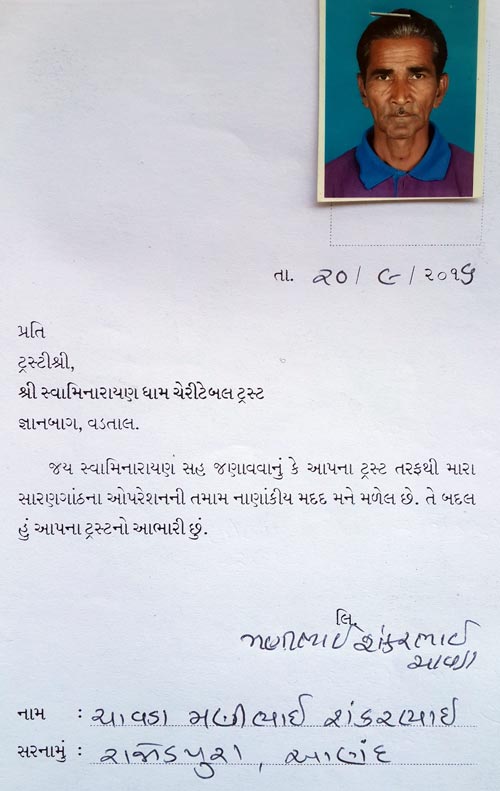 તા. ૨૦/૯/૨૦૧૬
પ્રતિ
ટ્રસ્ટીશ્રી,
શ્રી સ્વામિનારાયણ ધામ ચેરીટેબલ ટ્રસ્ટ
જ્ઞાનબાગ, વડતાલ.
જય સ્વામિનારાયણ સહ જણાવવાનું કે આપના ટ્રસ્ટ તરફથી મારા
સારણગાંઠના ઓપરેશનની તમામ નાણાંકીય મદદ મને મળેલ છે. તે બદલ
હું આપના ટ્રસ્ટનો આભારી છું.
લિ.
મણીભાઈ શંકરભાઈ
ચાવડા
નામ : ચાવડા મણીભાઈ શંકરભાઈ
સરનામું : રાજોડપુરા, આણંદ